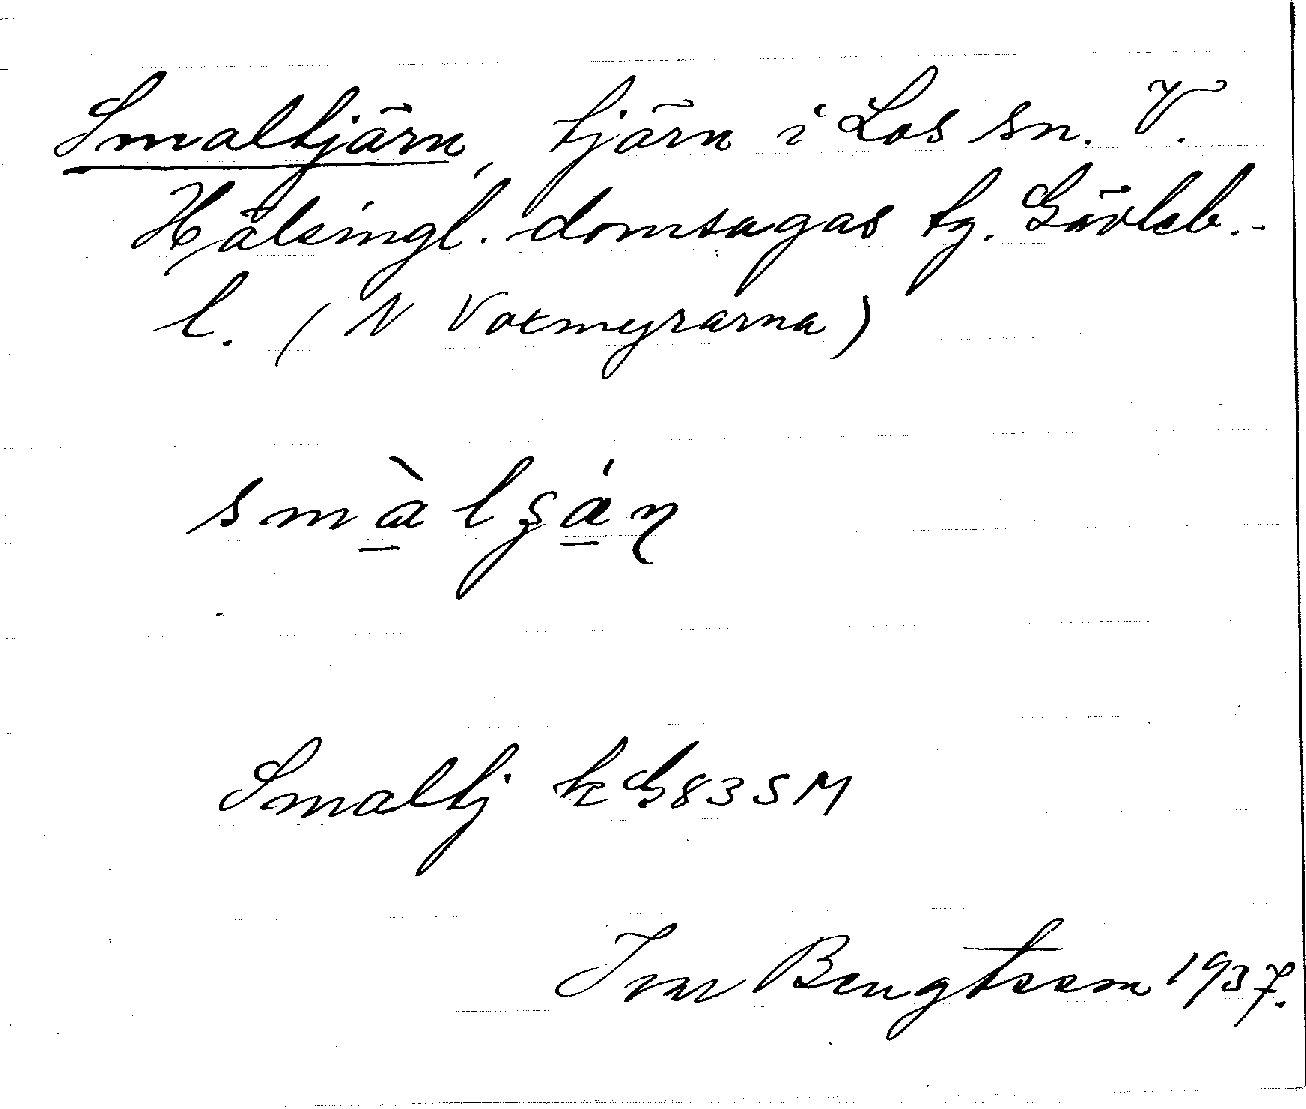 Smaltjärn, tjärn i Los sn. V.
Hälsingl. domsagas tg. Gävleb.-
l. (N Voxmyrarna)
smàlʂáɳ
Smaltj k G83SM
Ivar Bengtsson 1937.